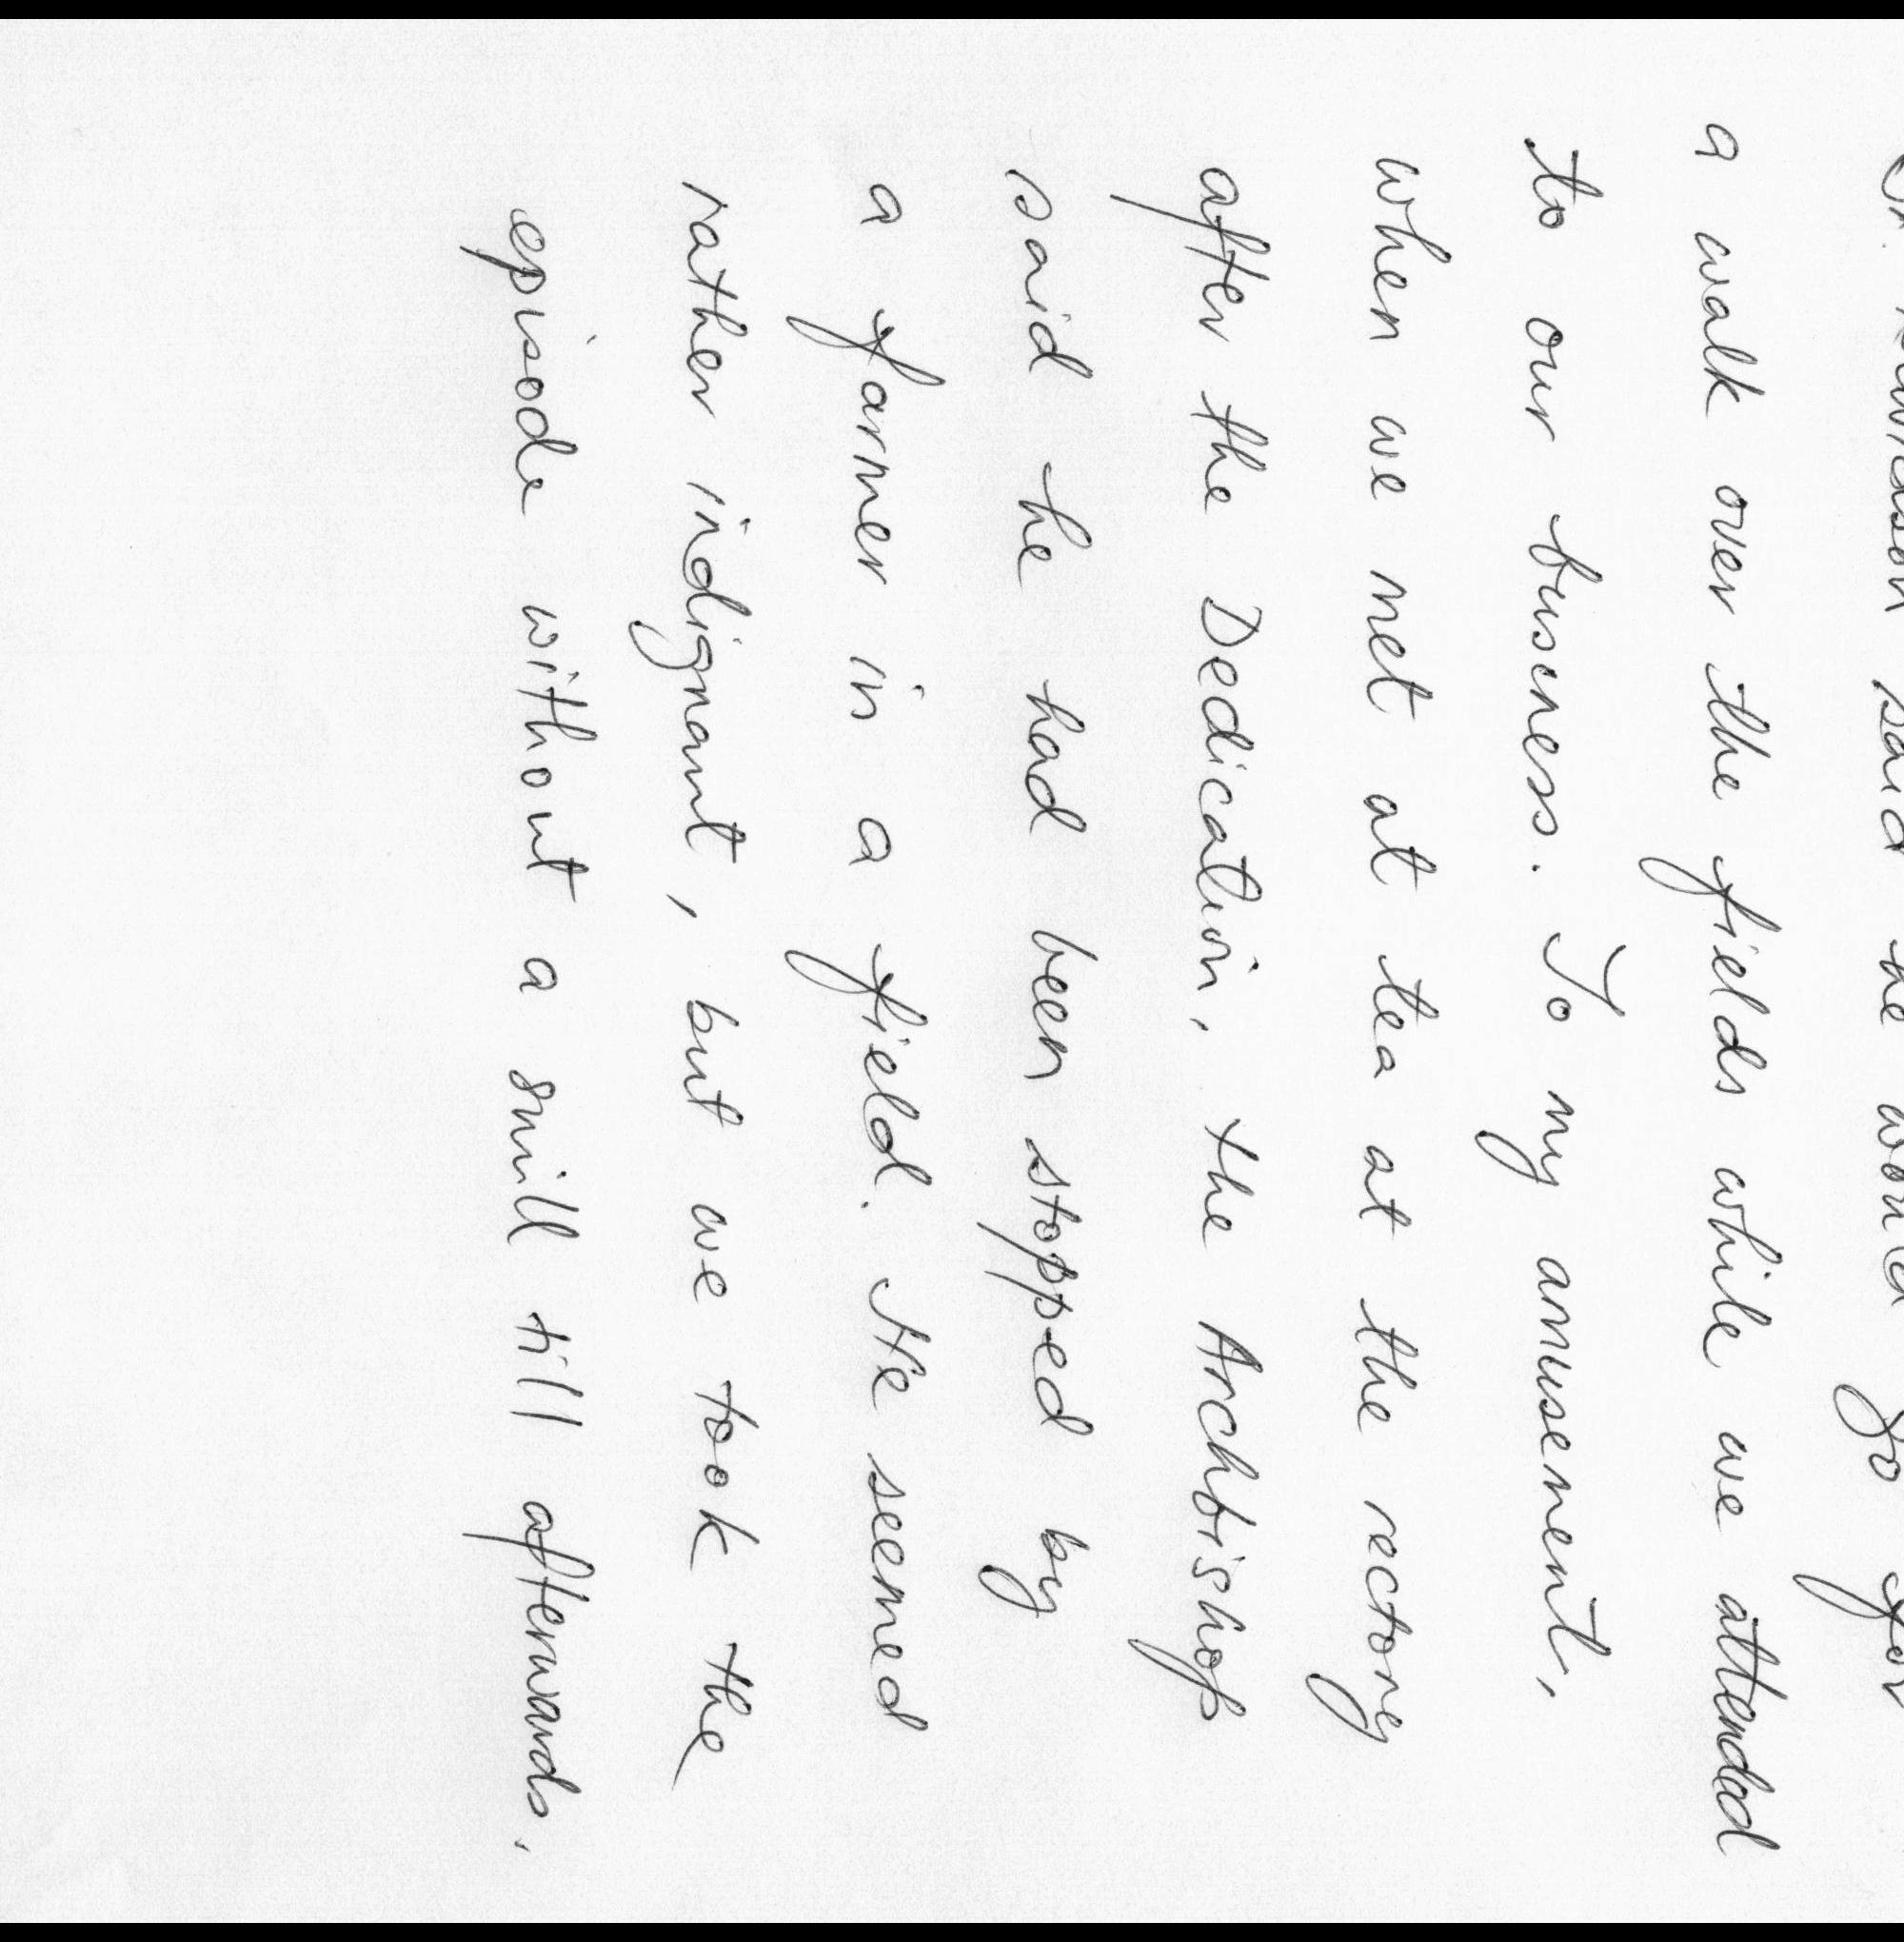 Dr. Davidson said he would go for
a walk over the fields while we attended
to our business. To my amusement,
when we met at tea at the rectory
after the Dedication, the Archbishop
said he had been stopped by
a farmer in a field. He seemed
rather indignant, but we took the
episode without a smill till afterwards.